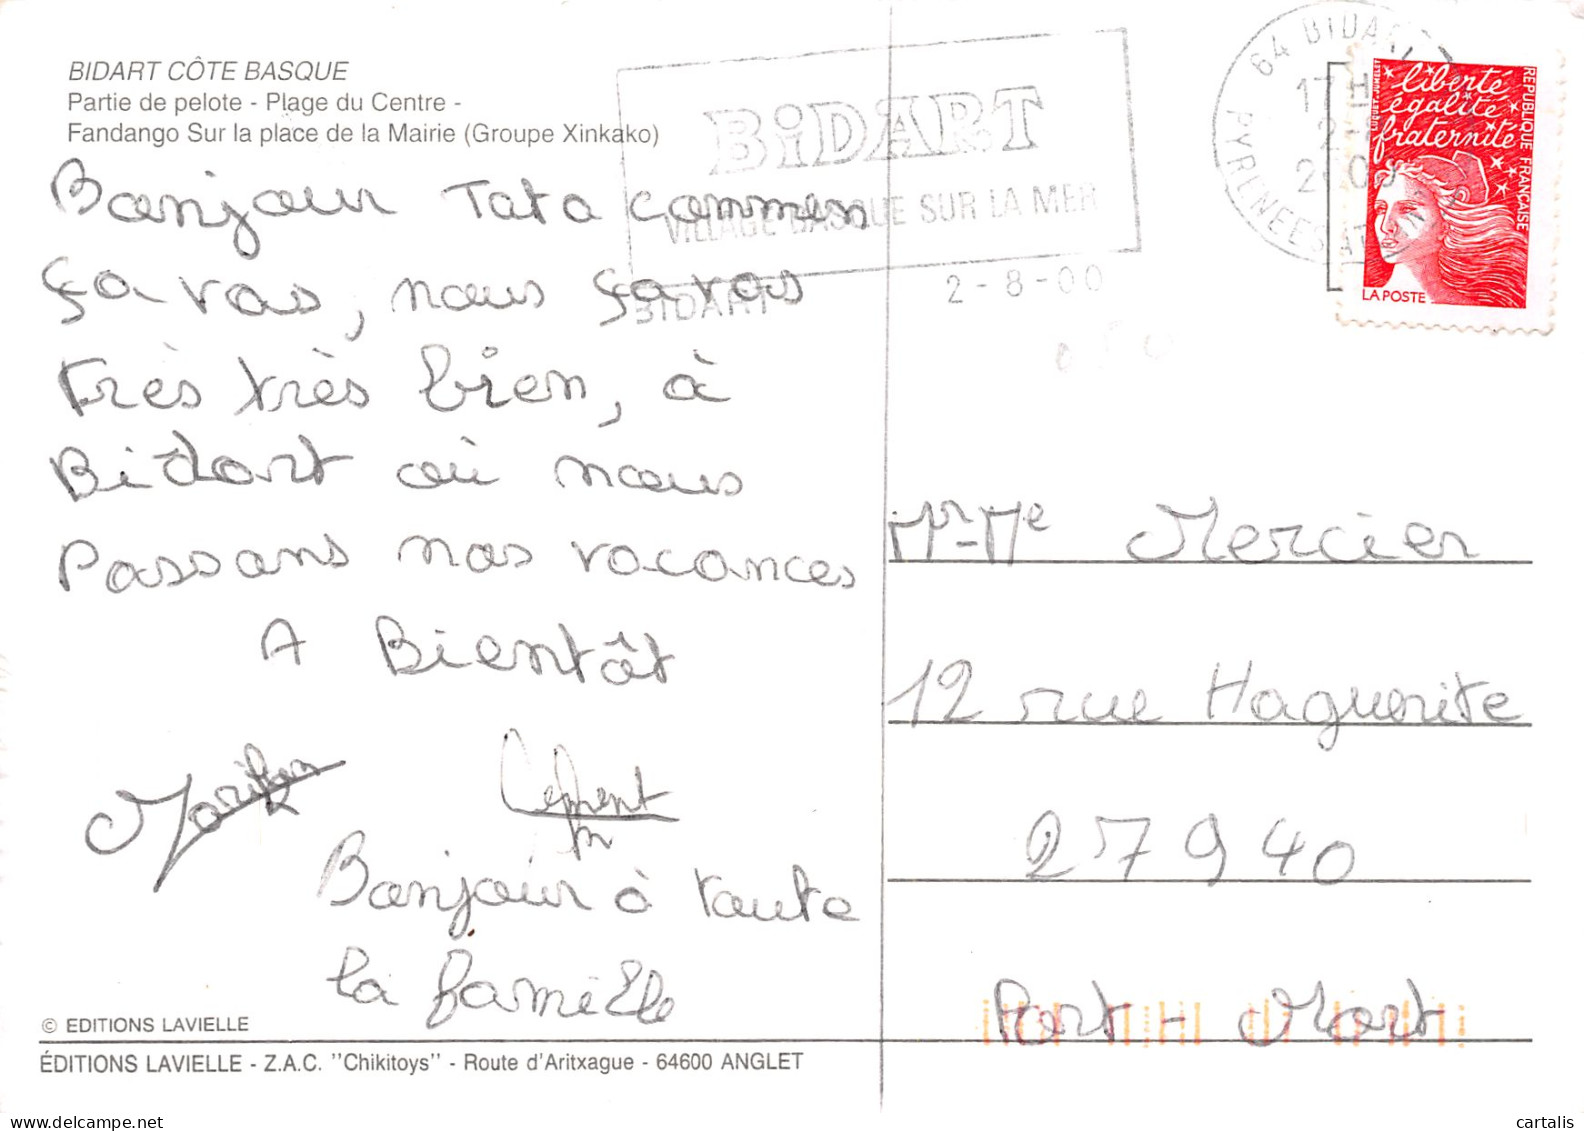 BIDART CÔTE BASQUE
Partie de pelote - Plage du Centre -
Fandango Sur la place de la Mairie (Groupe Xinkako)
BiDART
VILLAGE BASQUE SUR LA MER
BIDART
2-8-00
64 BIDART
17H
2-8
2000
PYRENEES AT
liberté
égalité
fraternité
REPUBLIQUE FRANÇAISE
LA POSTE
Bonjour Tata commen
ça vas, nous ça vas
très très bien, à
Bidart où nous
Passons nos vacances
A Bientôt
Clément
Bonjour à toute
la famille
Mr-Me Mercier
12 rue Haguerite
27940
Port-Mort
© EDITIONS LAVIELLE
ÉDITIONS LAVIELLE - Z.A.C. "Chikitoys" - Route d'Aritxague - 64600 ANGLET
cartalis